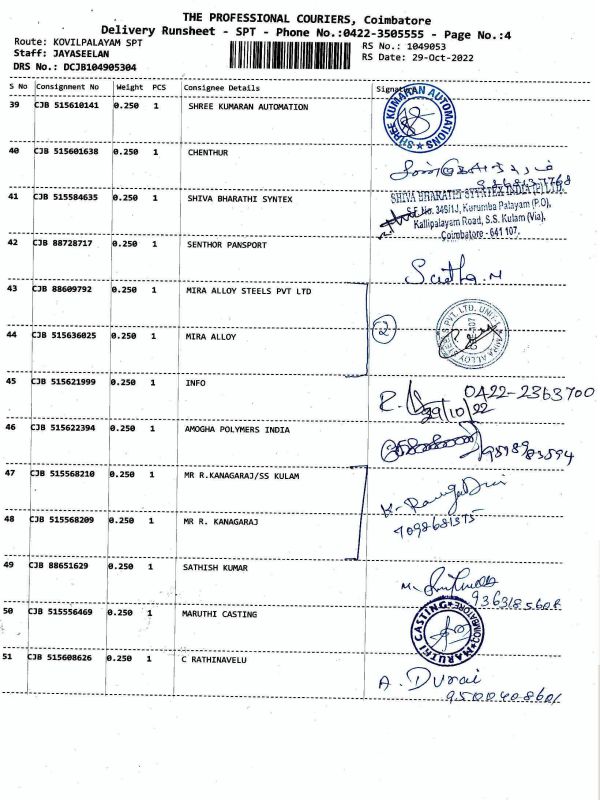 THE PROFESSIONAL COURIERS, Coimbatore
Delivery Runsheet - SPT - Phone No.:0422-3505555 - Page No.:4
Route: KOVILPALAYAM SPT
Staff: JAYASEELAN
DRS No.: DCJB104905304
RS No.: 1049053
RS Date: 29-Oct-2022
S No Consignment No Weight PCS Consignee Details Signature
39 CJB 515610141 0.250 1 SHREE KUMARAN AUTOMATION
SHREE KUMARAN AUTOMATIONS
40 CJB 515601638 0.250 1 CHENTHUR
41 CJB 515584635 0.250 1 SHIVA BHARATHI SYNTEX
SHIVA BHARATHI SYNTEX INDIA (P) LTD.
S.F. No. 349/1J, Kurumba Palayam (P.O),
Kallipalayam Road, S.S. Kulam (Via),
Coimbatore - 641 107.
42 CJB 88728717 0.250 1 SENTHOR PANSPORT
43 CJB 88609792 0.250 1 MIRA ALLOY STEELS PVT LTD
2
MIRA ALLOY STEELS PVT. LTD. UNIT-I
44 CJB 515636025 0.250 1 MIRA ALLOY
45 CJB 515621999 0.250 1 INFO
0422-2363700
29/10/22
46 CJB 515622394 0.250 1 AMOGHA POLYMERS INDIA
47 CJB 515568210 0.250 1 MR R.KANAGARAJ/SS KULAM
7098681375
48 CJB 515568209 0.250 1 MR R. KANAGARAJ
49 CJB 88651629 0.250 1 SATHISH KUMAR
50 CJB 515556469 0.250 1 MARUTHI CASTING
MARUTHI CASTING COIMBATORE
51 CJB 515608626 0.250 1 C RATHINAVELU
A. Durai
9500408601